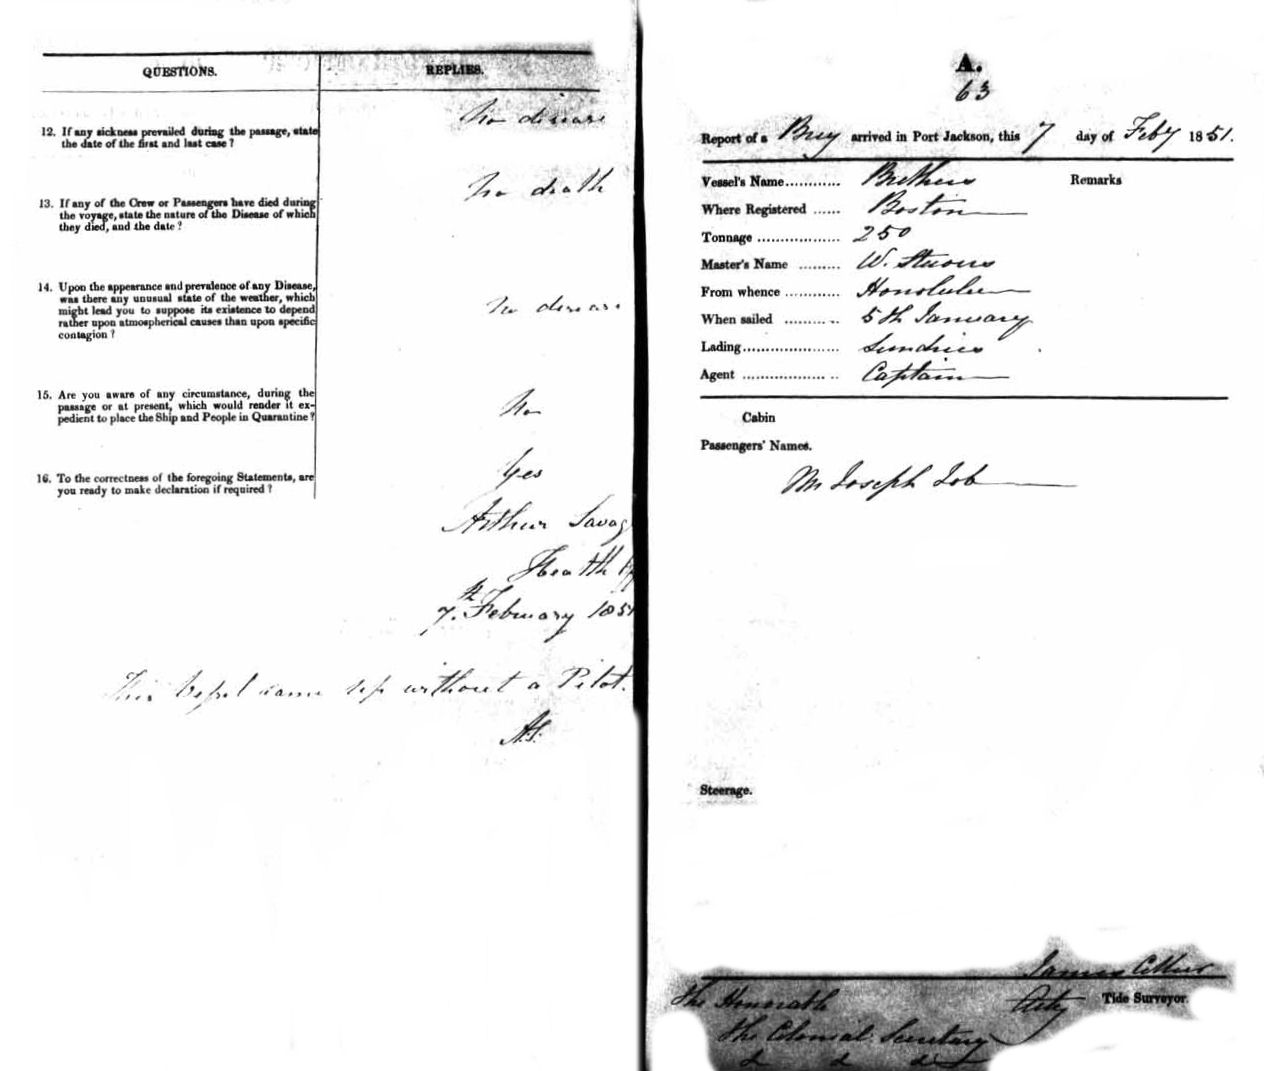 QUESTIONS.
REPLIES.
12. If any sickness prevailed during the passage, state
the date of the first and last case?
No disease
13. If any of the Crew or Passengers have died during
the voyage, state the nature of the Disease of which
they died, and the date?
No death
14. Upon the appearance and prevalence of any Disease,
was there any unusual state of the weather, which
might lead you to suppose its existence to depend
rather upon atmospherical causes than upon specific
contagion?
No disease
15. Are you aware of any circumstance, during the
passage or at present, which would render it ex-
pedient to place the Ship and People in Quarantine?
No
16. To the correctness of the foregoing Statements, are
you ready to make declaration if required?
Yes
Arthur Savag
Health
7th February 1851
This Vessel came up without a Pilot.
A.S.
A.
63
Report of a Brig arrived in Port Jackson, this 7 day of Feby 1851.
Vessel's Name............ Brothers
Remarks
Where Registered ...... Boston
Tonnage .................. 250
Master's Name ......... W. Stevens
From whence ............ Honolulu
When sailed ............ 5th January
Lading..................... Sundries
Agent ..................... Captain
Cabin
Passengers' Names.
Mr Joseph Job
Steerage.
James
Actg Tide Surveyor.
The Honorable
The Colonial Secretary
& & &